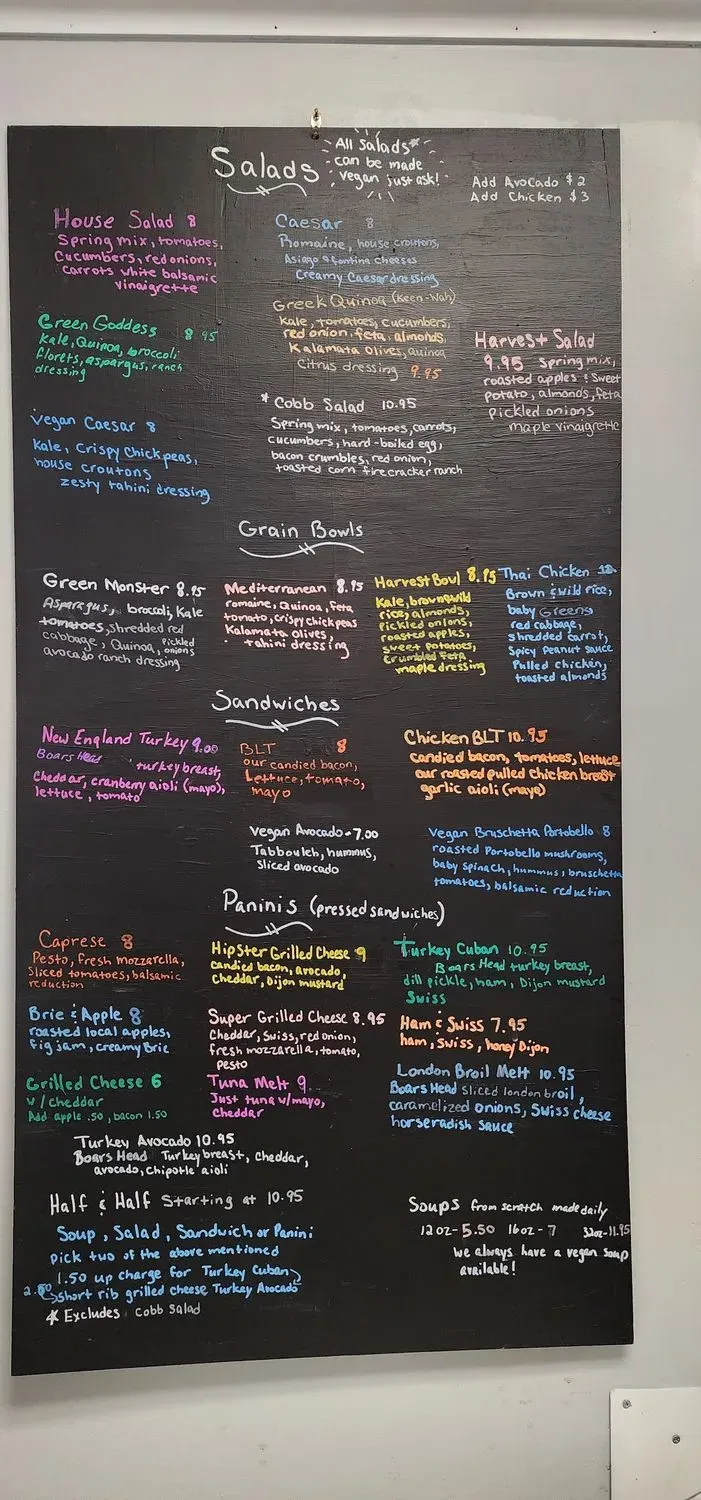 Salads
All Salads*
can be made
vegan just ask!
Add Avocado $2
Add Chicken $3
House Salad 8
Spring mix, tomatoes,
Cucumbers, red onions,
carrots white balsamic
vinaigrette
Caesar 8
Romaine, house croutons,
Asiago & fontina cheeses
Creamy Caesar dressing
Green Goddess 8 95
Kale, Quinoa, broccoli
florets, aspargus, ranch
dressing
Greek Quinoa (Keen-Wah)
Kale, tomatoes, cucumbers,
red onion, feta, almonds,
Kalamata olives, quinoa
Citrus dressing 9.95
Harvest Salad
9.95 Spring mix,
roasted apples & Sweet
Potato, almonds, feta
pickled onions
maple vinaigrette
Vegan Caesar 8
Kale, Crispy Chickpeas,
house croutons
zesty tahini dressing
* Cobb Salad 10.95
Spring mix, tomatoes, carrots,
cucumbers, hard-boiled egg,
bacon crumbles, red onion,
toasted corn firecracker ranch
Grain Bowls
Green Monster 8.95
Asparagus, broccoli, Kale
tomatoes, shredded red
cabbage, Quinoa, Pickled onions
avocado ranch dressing
Mediterranean 8.95
romaine, Quinoa, feta
tomato, crispy chickpeas
Kalamata olives,
tahini dressing
Harvest Bowl 8.95
Kale, brown & wild
rice, almonds,
pickled onions,
roasted apples,
sweet potatoes,
crumbled feta
maple dressing
Thai Chicken
Brown & wild rice,
baby Greens
red cabbage,
shredded carrot,
Spicy Peanut Sauce
Pulled chicken,
toasted almonds
Sandwiches
New England Turkey 9.00
Boars Head turkey breast,
Cheddar, cranberry aioli (mayo),
lettuce, tomato
BLT 8
our candied bacon,
Lettuce, tomato,
mayo
Chicken BLT 10.95
candied bacon, tomatoes, lettuce
our roasted pulled chicken breast
garlic aioli (mayo)
Vegan Avocado-7.00
Tabbouleh, hummus,
Sliced avocado
Vegan Bruschetta Portobello 8
roasted Portobello mushrooms,
baby spinach, hummus, bruschetta
tomatoes, balsamic reduction
Paninis (pressed sandwiches)
Caprese 8
Pesto, fresh mozzarella,
Sliced tomatoes, balsamic
reduction
Hipster Grilled Cheese 9
candied bacon, avocado,
cheddar, Dijon mustard
Turkey Cuban 10.95
Boars Head turkey breast,
dill pickle, ham, Dijon mustard
Swiss
Brie & Apple 8
roasted local apples,
fig jam, creamy Brie
Super Grilled Cheese 8.95
Cheddar, Swiss, red onion,
fresh mozzarella, tomato,
pesto
Ham & Swiss 7.95
ham, Swiss, honey Dijon
Grilled Cheese 6
w/cheddar
Add apple .50, bacon 1.50
Tuna Melt 9
Just tuna w/mayo,
cheddar
London Broil Melt 10.95
Boars Head Sliced london broil,
caramelized onions, Swiss cheese
horseradish sauce
Turkey Avocado 10.95
Boars Head Turkey breast, cheddar,
avocado, chipotle aioli
Half & Half Starting at 10.95
Soup, Salad, Sandwich or Panini
pick two of the above mentioned
1.50 up charge for Turkey Cuban
2.00 short rib grilled cheese Turkey Avocado
* Excludes Cobb Salad
Soups from scratch made daily
12oz-5.50 16oz-7 32oz-11.95
we always have a vegan soup
available!